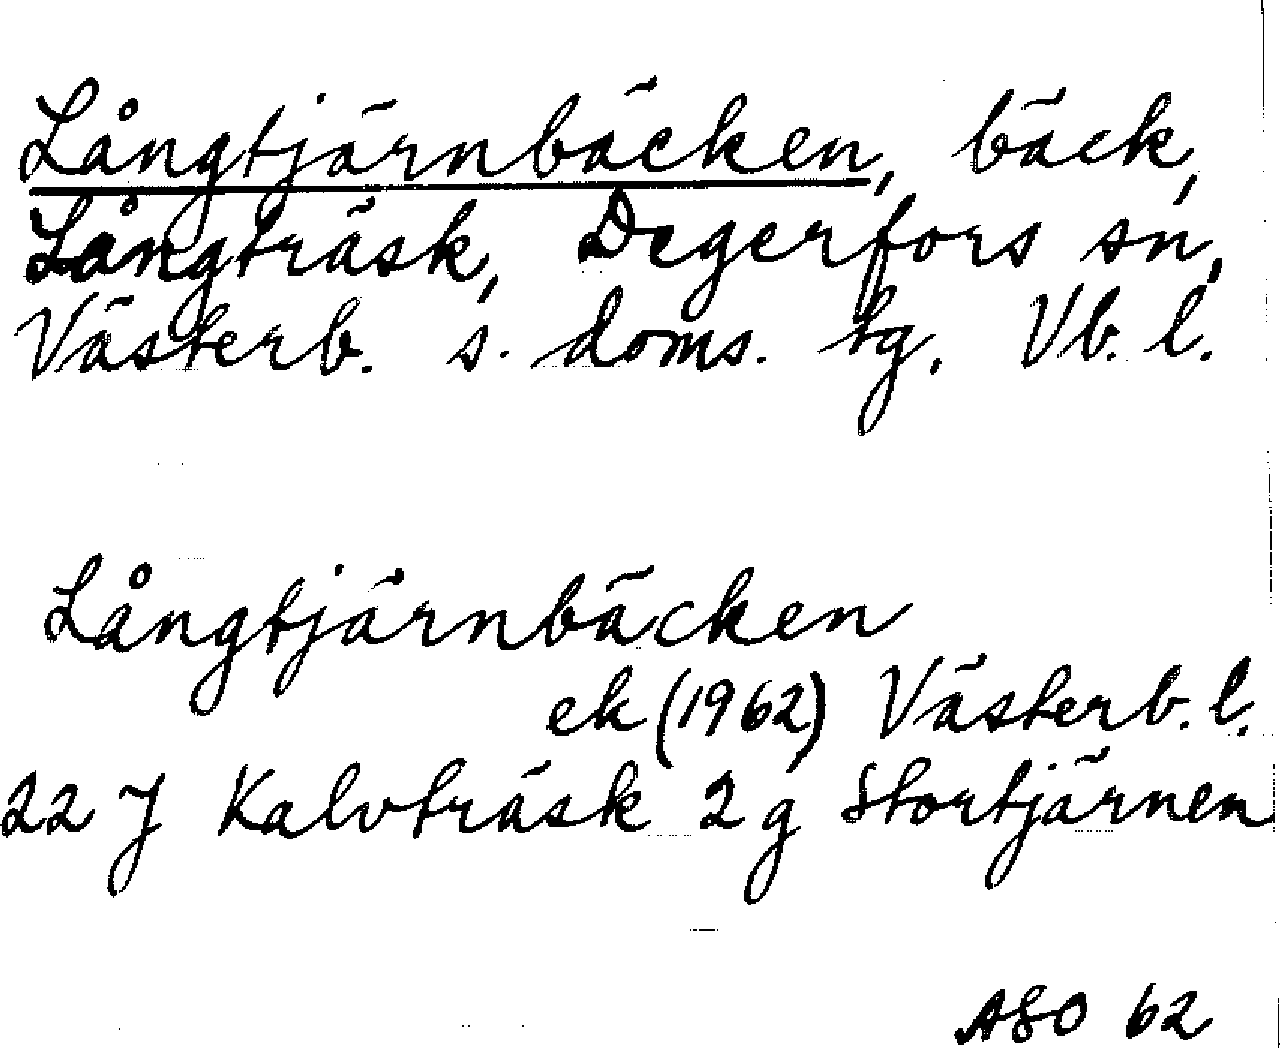 Långtjärnbäcken, bäck,
Långträsk, Degerfors sn,
Västerb. s. doms. tg. Vb. l.
Långtjärnbäcken
ek (1962) Västerb. l.
22 J Kalvträsk 2 g Stortjärnen
ASO 62